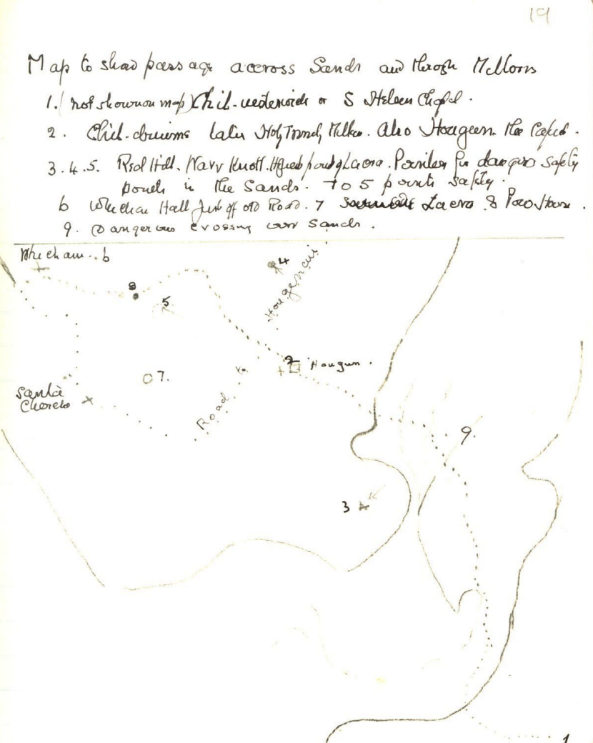 19
Map to show passage accross Sands and through Millom
1. (not shown on map) Chil- or S Heleen Chapel.
2. Chil- later Holy Trinity Millom. Also Hougun the Capital.
3.4.5. Red Hill. Knott. Highest point of Lacra. Pointers for dangers safety
points in the Sands. to 5 points safety.
6 Whicham Hall Just off old Road. 7 Lacra 8 Poo House.
9. Dangerous crossing over Sands.
Whicham. 6
8
4
5
Hougenai
2 Hougun.
7.
Santa
Road
9.
3
1